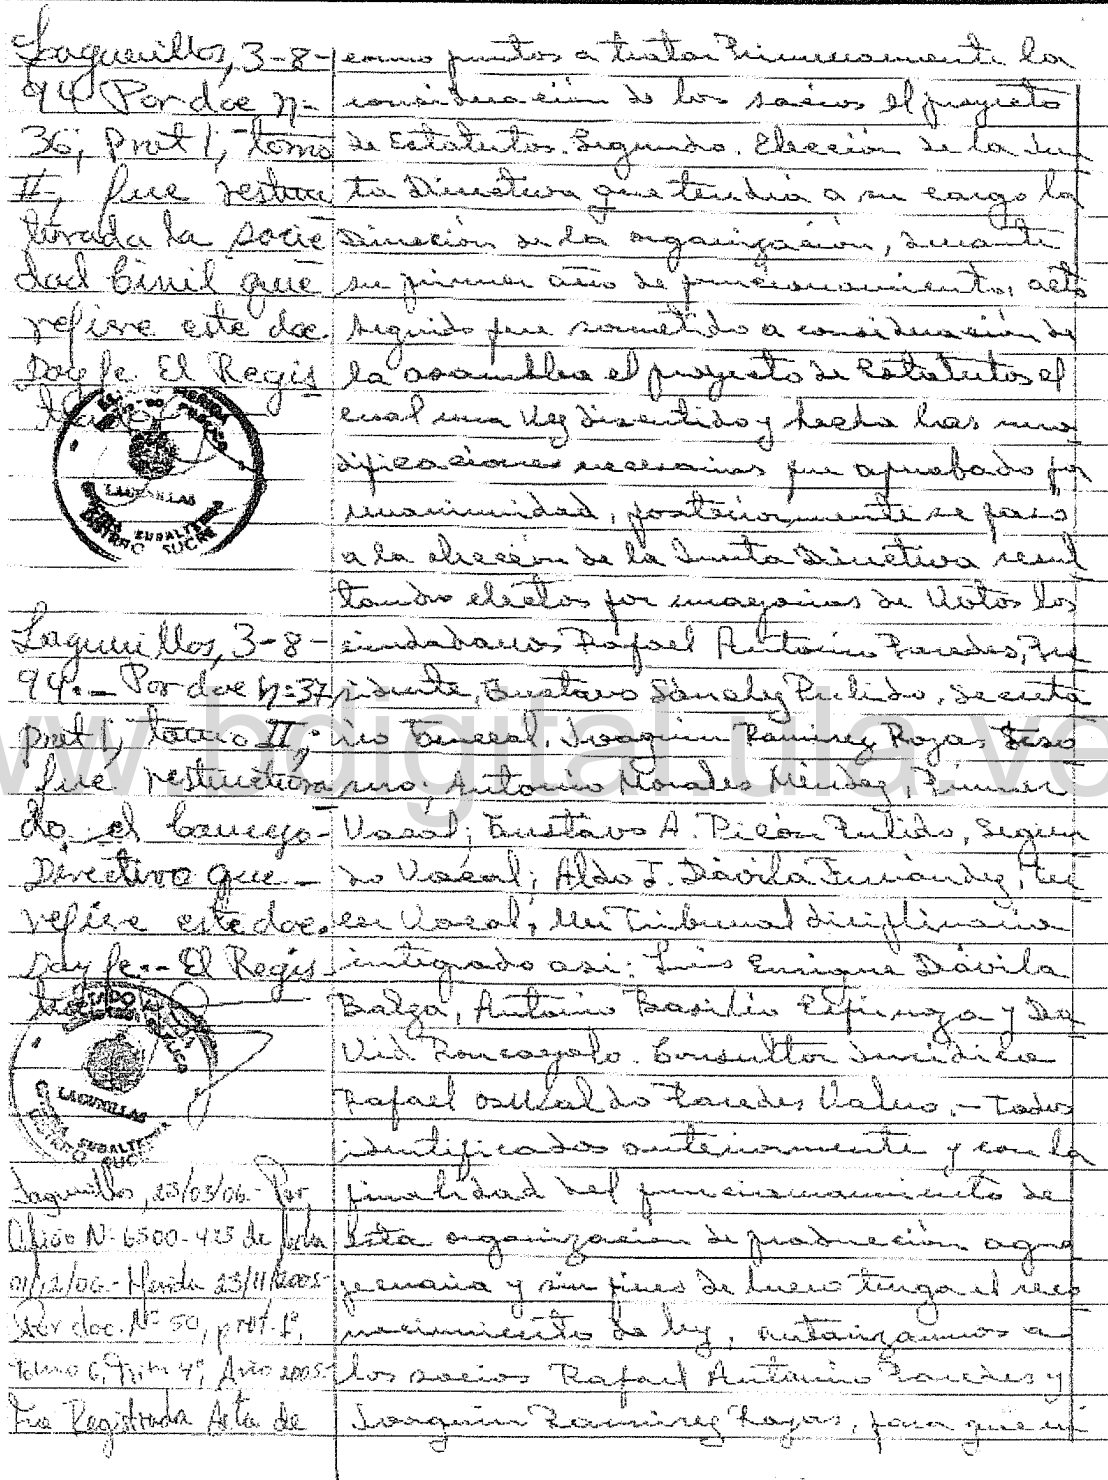 Lagunillas, 3-8-
94 Por doc N=
36, Prot 1, tomo
II, fue restruc
turada la socie
dad Civil que
refiere este doc.
Doy fe. El Regis
LAGUNILLAS
SUBALTERNA
DISTRITO SUCRE
Lagunillas, 3-8-
94.- Por doc N=37
prot 1, tomo II,
fué restructura
do el Consejo
Directivo que
refiere este doc.
Doy fe.- El Regis
LAGUNILLAS
SUBALTERNA
SUCRE
Lagunillas, 23/03/06.- Por
Oficio N= 6500-425 de fecha
01/12/06.- Merida 23/11/2005-
Por doc. N= 50, prot. 1º,
Tomo 6, Trim 4º, Año 2005-
Fue Registrada Acta de
como puntos a tratar Primeramente la
consideración de los socios el proyecto
de Estatutos. Segundo. Elección de la Jun
ta Directiva que tendra a su cargo la
Dirección de la organización, durante
su primer año de funcionamiento, acto
seguido fue sometido a consideración de
la asamblea el proyecto de Estatutos el
cual una vez discutido y hecho las mo
dificaciones necesarias fue aprobado por
unanimidad, posteriormente se paso
a la elección de la Junta Directiva resul
tando electos por mayorias de Votos los
ciudadanos Rafael Antonio Paredes, Pre
sidente, Gustavo Sánchez Pulido, Secreta
rio General, Joaquin Ramirez Rojas Teso
rero, Antonio Morales Méndez, Primer
Vocal; Gustavo A. Picón Pulido, Segun
do Vocal; Aldo J. Dávila Fernández, ter
cer Vocal, Un Tribunal disciplinario
integrado asi: Luis Enrique Dávila
Balza, Antonio Basilio Espinoza y Da
vid Roncayolo. Consultor Juridico
Rafael Oswaldo Paredes Valero.- Todos
identificados anteriormente y con la
finalidad del funcionamiento de
Esta organización de producción agro
pecuaria y sin fines de lucro tenga el reco
nocimiento de ley, autorizamos a
los socios Rafael Antonio Paredes y
Joaquin Ramirez Rojas, para que
www.bdigital.ula.ve